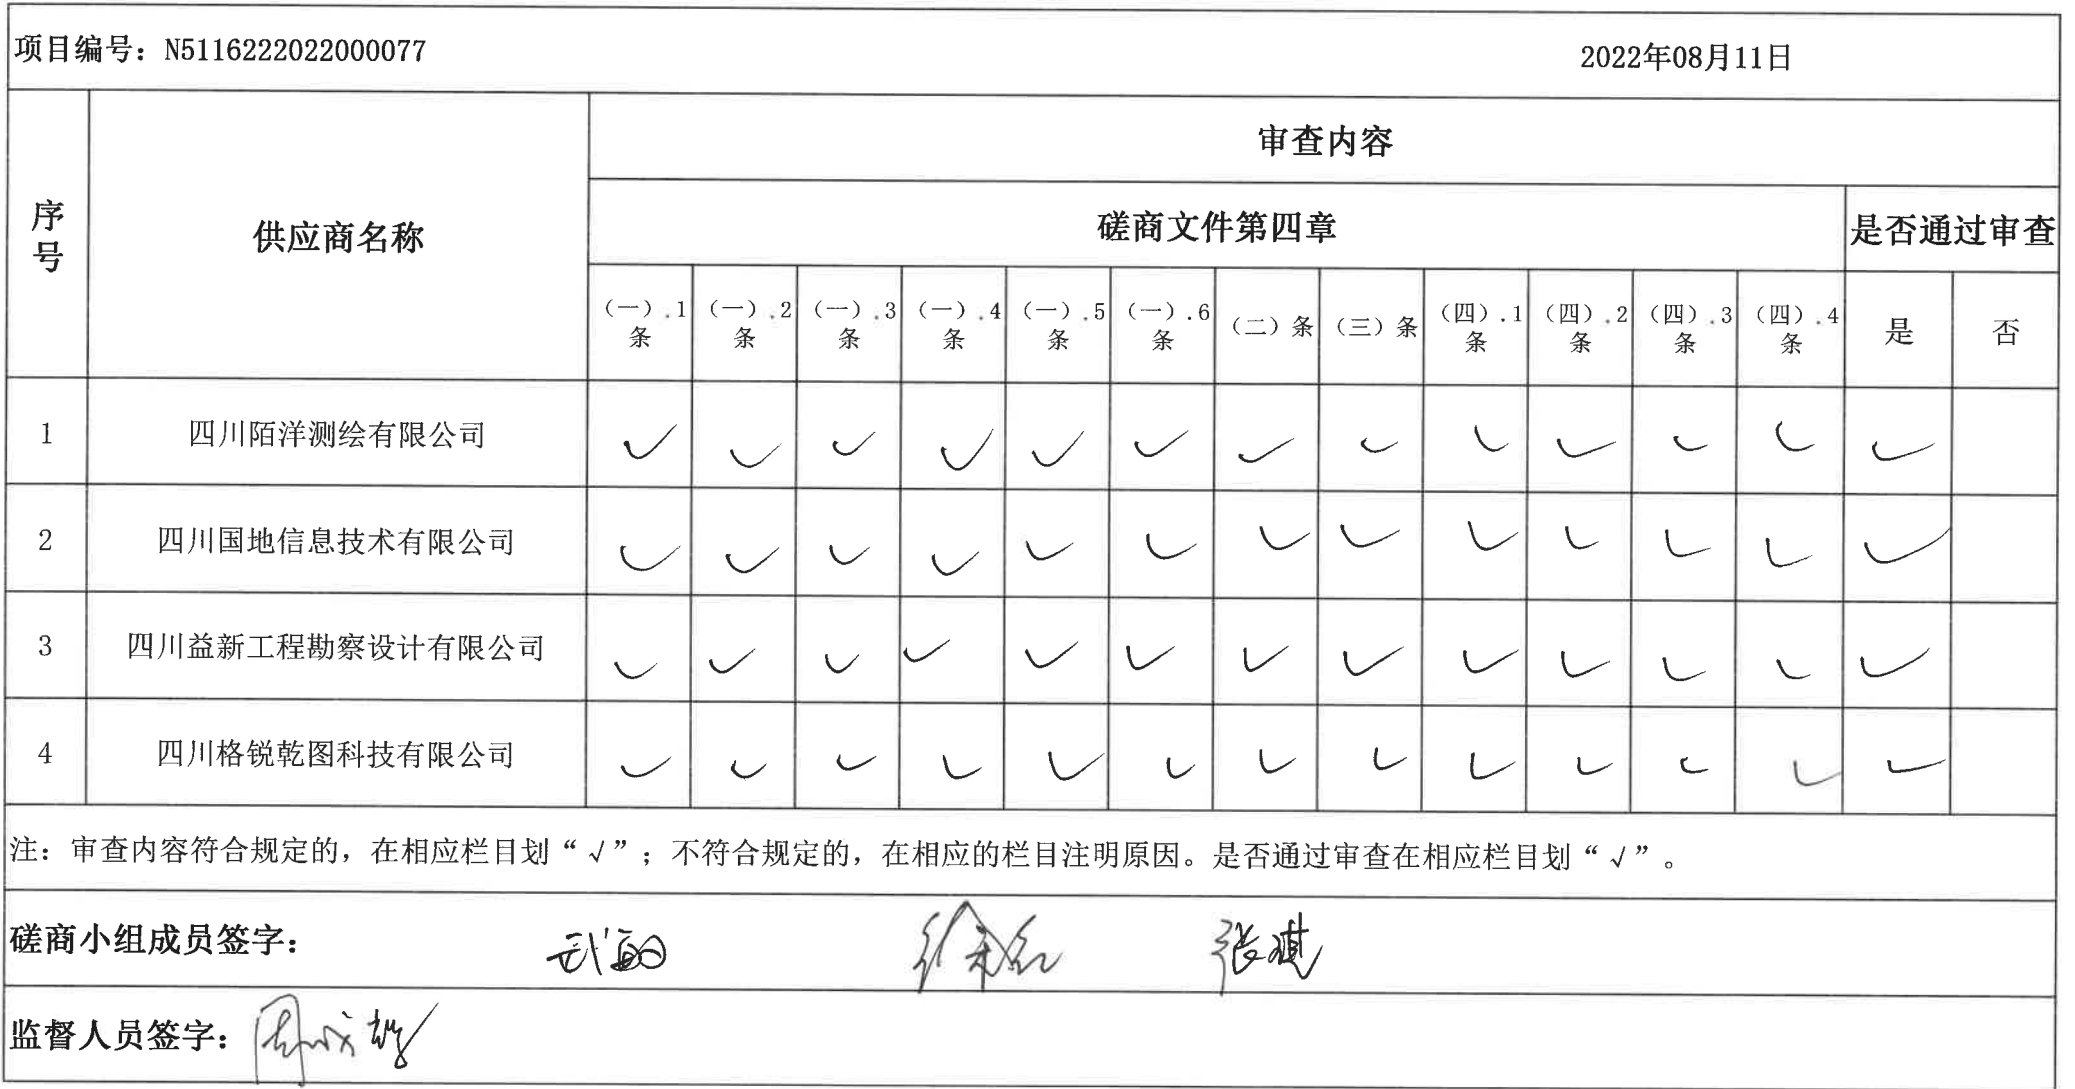 项目编号：N5116222022000077 2022年08月11日
序号 供应商名称 审查内容
磋商文件第四章 是否通过审查
（一）.1条 （一）.2条 （一）.3条 （一）.4条 （一）.5条 （一）.6条 （二）条 （三）条 （四）.1条 （四）.2条 （四）.3条 （四）.4条 是 否
1 四川陌洋测绘有限公司 ✓ ✓ ✓ ✓ ✓ ✓ ✓ ✓ ✓ ✓ ✓ ✓ ✓
2 四川国地信息技术有限公司 ✓ ✓ ✓ ✓ ✓ ✓ ✓ ✓ ✓ ✓ ✓ ✓ ✓
3 四川益新工程勘察设计有限公司 ✓ ✓ ✓ ✓ ✓ ✓ ✓ ✓ ✓ ✓ ✓ ✓ ✓
4 四川格锐乾图科技有限公司 ✓ ✓ ✓ ✓ ✓ ✓ ✓ ✓ ✓ ✓ ✓ ✓ ✓
注：审查内容符合规定的，在相应栏目划“√”；不符合规定的，在相应的栏目注明原因。是否通过审查在相应栏目划“√”。
磋商小组成员签字： 张琪
监督人员签字：